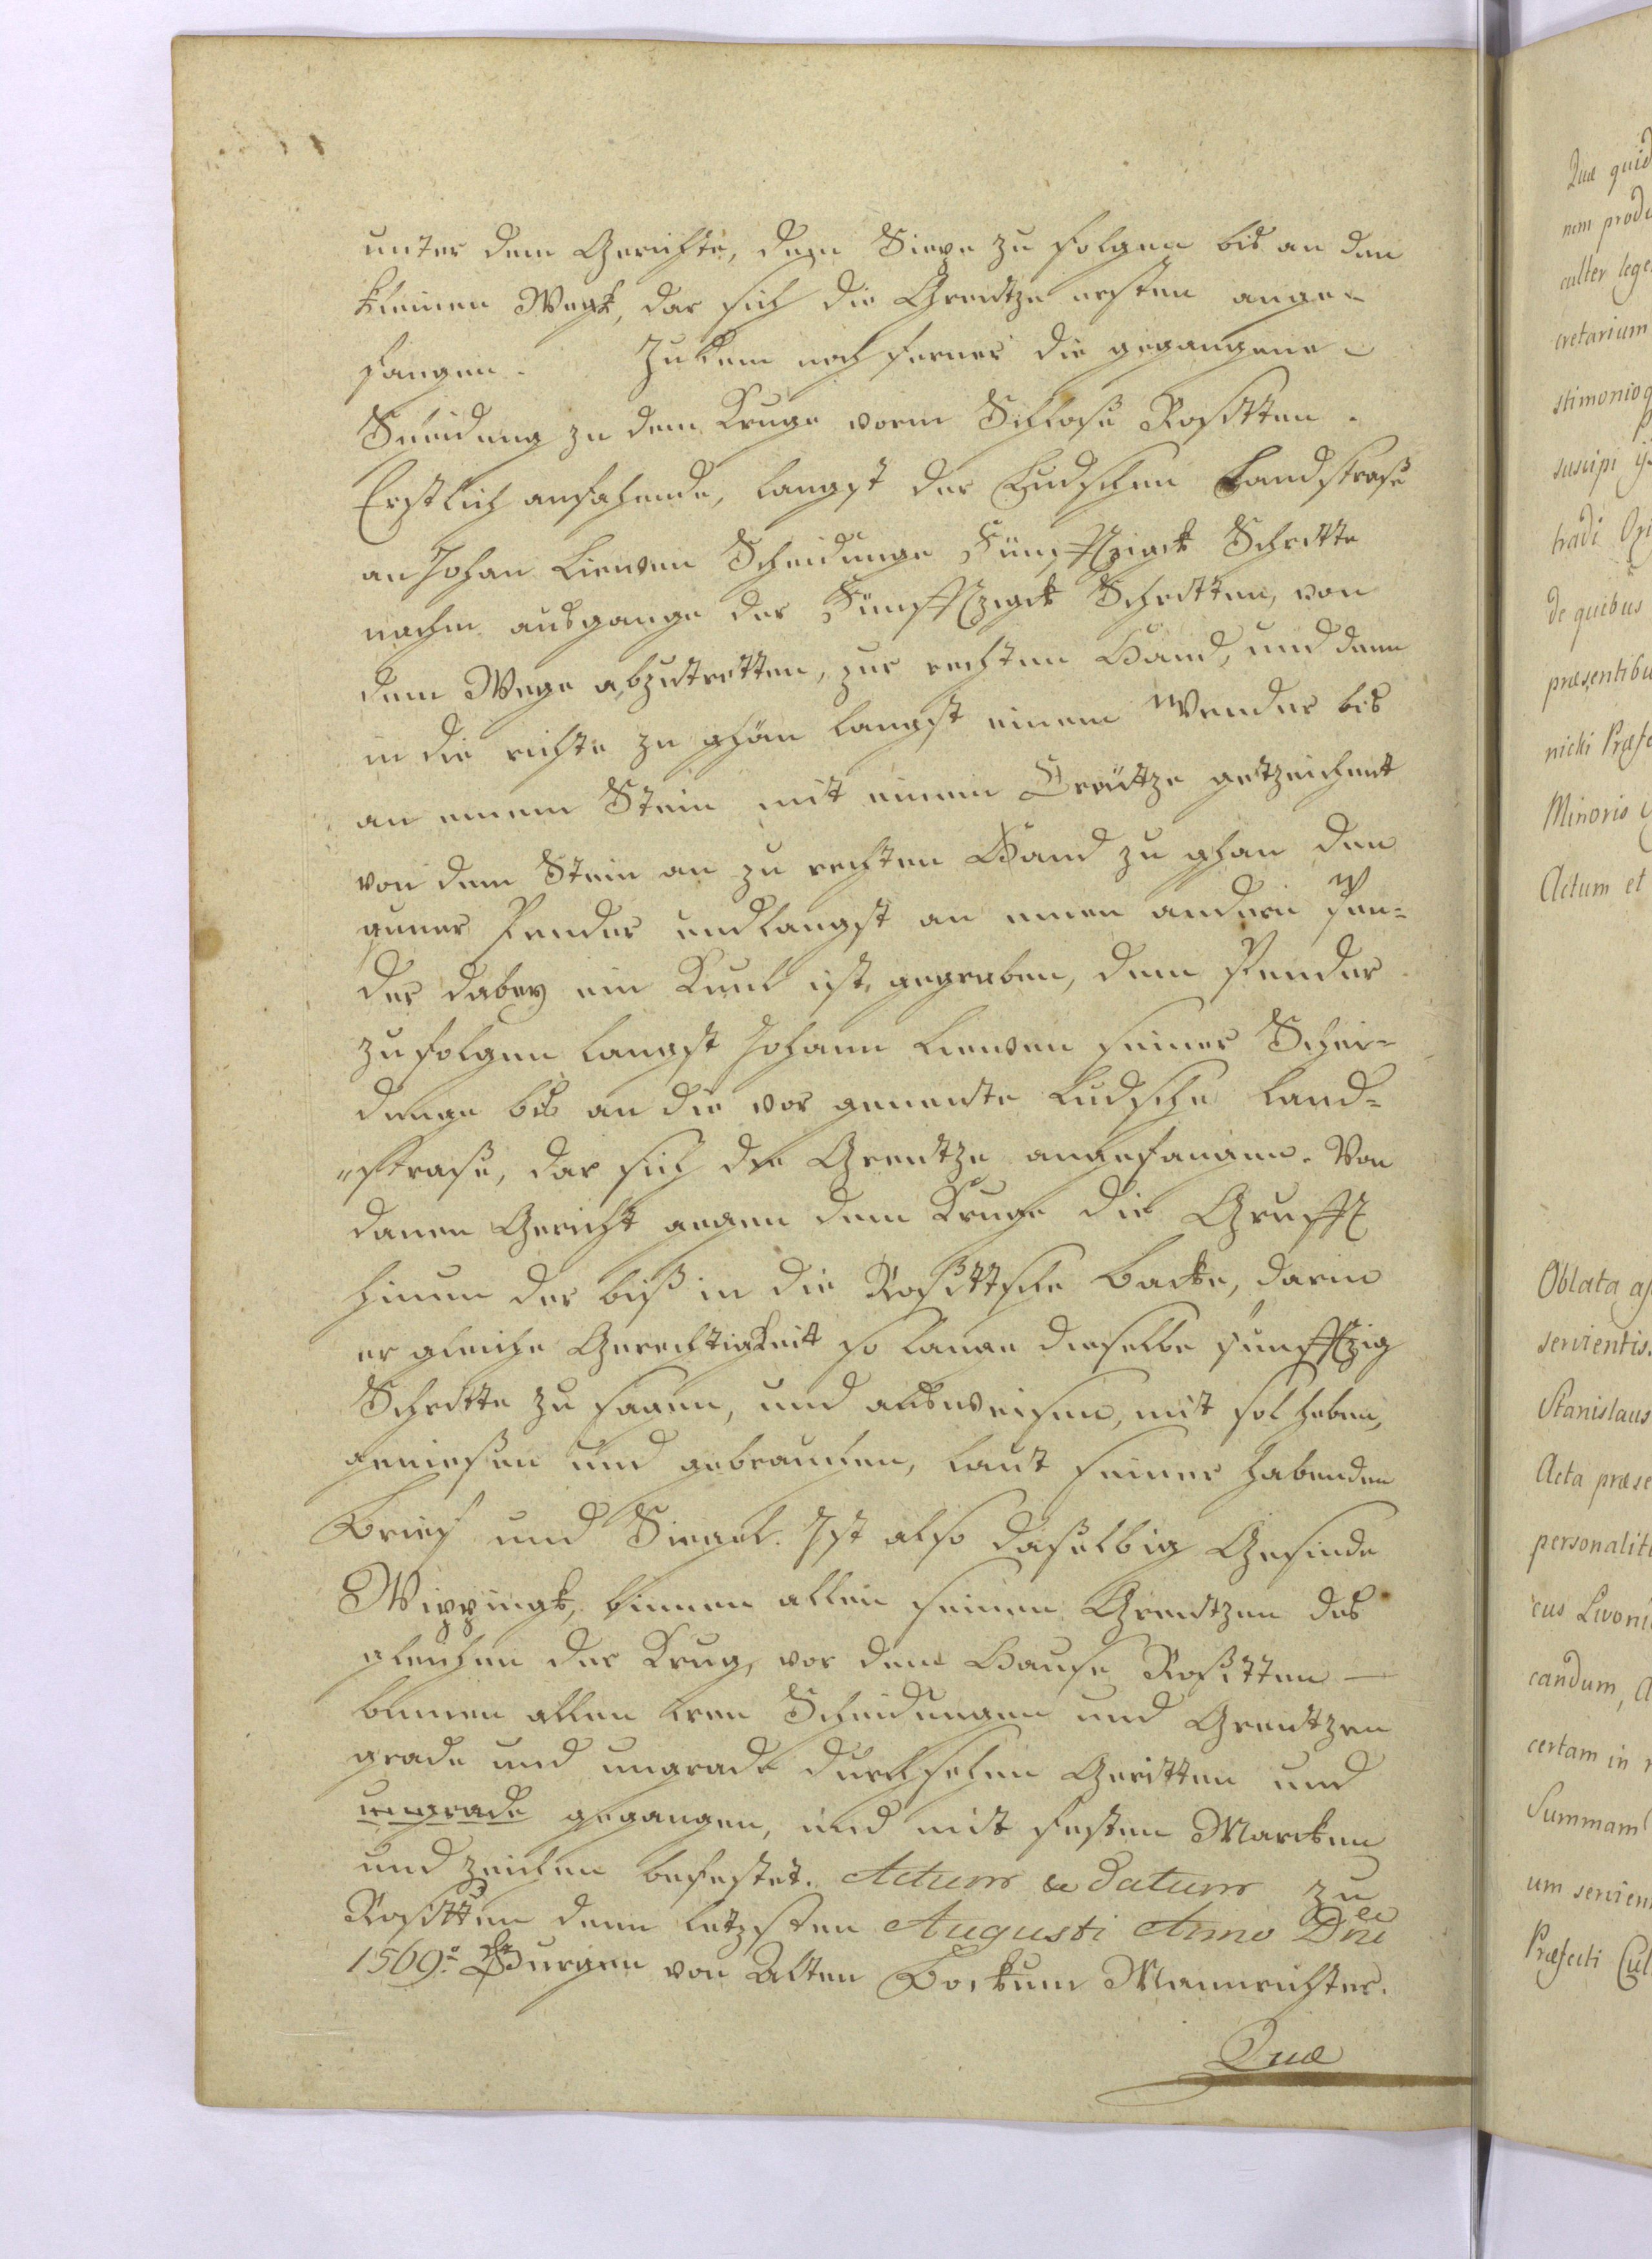 unter dem Gerichte, dem Siepe zu folgen bis an den
kleinen Wegk, dar sich die Grentze ersten ange-
fangen. Zudem noch ferner die gegangene
Scheidung zu dem Kruge vorm Schloße Rositten.
Erstlich anfahende, langst der Ludschen Landstraße
an Johan Liewen Scheidunge Fünfftzigk Schritte
nachm ausgange der Fünfftzigk Schritten, von
dem Wege abzutretten, zur rechten Hand, und dann
in die richte zu ghan langst einem Wender bis
an einem Stein mit einem Creütze getzeichent
von dem Stein an zu rechten Hand zu ghan den
Fender und langst an einen andern Ven-
der dabey ein Kuul ist gegraben, dem Vender
zufolgen langst Johann Liewen seiner Schei-
dunge bis an die vor genente Ludsche Land-
straße, dar sich die Grentze angefangen. Von
danen Gericht gegen dem Kruge die Grufft
hinun der biß in die Roßittsche Backe, darin
er gleiche Gerechtigkeit so lange dieselbe fünfftzig
Schritte zu sagen, und ausweisen, mit sol heben,
genießen und gebrauchen, laut seiner habenden
Brief und Siegel. Ist also daselbig Gesinde
Wippingk, binnen allen seinen Grentzen des
gleichen der Krug, vor dem Hause Roßitten
binnen allen iren Scheidungen und Grentzen
grade und ungrade durchsehen Geritten und
ungrade gegangen, und mit festen Marcken
und Zeichen befestet. Actum & datum zu
Rositten denn letzsten Augusti Anno Dni
1569.o Jurgen von Alten Bockum Mannrichter.
Quæ
Quæ quid
nem prod
culter lege
cretarium
stimonio q
suscipi
tradi
de quibus
præsentibu
nicki Præfe
Minoris
Actum et
Oblata
servientis
Stanislaus
Acta præse
personalit
cus Livoni
candum, A
certam in
Summam
um servien
Præfecti Cul